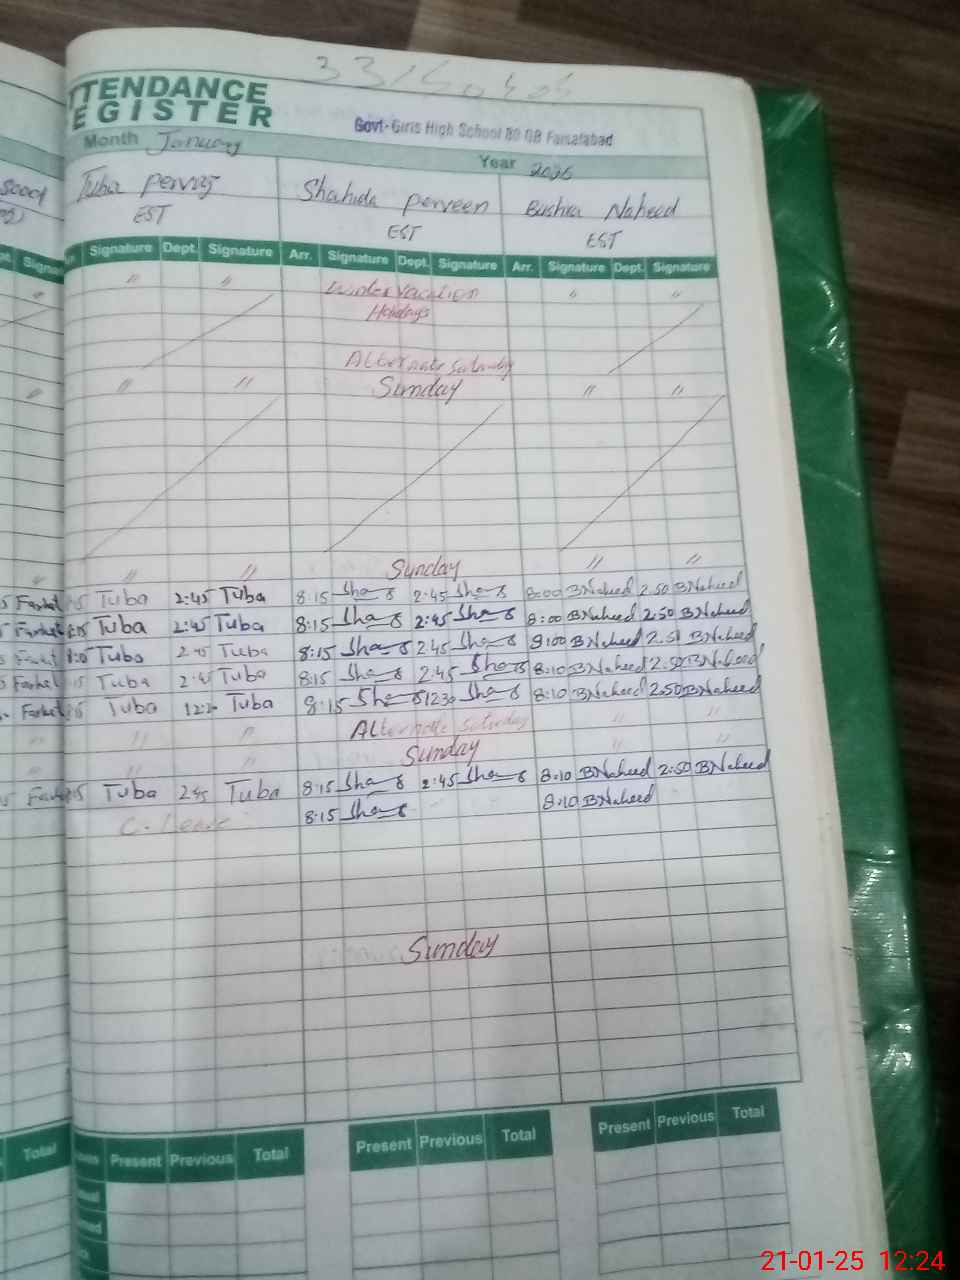 ATTENDANCE
REGISTER
Govt- Girls High School 80 GB Faisalabad
Month January Year 2026
Tuba perviz Shahida perveen Bushra Naheed
EST EST EST
Signature Dept. Signature Arr. Signature Dept. Signature Arr. Signature Dept. Signature
" " Winter vacation " "
Holidays
Alternate Saturday
" " Sunday " "
" " Sunday " "
Farhat Tuba 2:45 Tuba 8:15 2:45 8:00 BNaheed 2.50 BNaheed
Farhat 8:15 Tuba 2:45 Tuba 8:15 2:45 8:00 BNaheed 2.50 BNaheed
Farhat Tuba 2:45 Tuba 8:15 2:45 8:00 BNaheed 2.50 BNaheed
Farhat Tuba 2:45 Tuba 8:15 2:45 8:10 BNaheed 2.50 BNaheed
Farhat Tuba Tuba 8:15 1230 8:10 BNaheed 2.50 BNaheed
" " " Alternate Saturday " "
" " " Sunday " "
Farhat Tuba 2:45 Tuba 8:15 2:45 8:10 BNaheed 2:50 BNaheed
C. Leave 8:15 8:10 BNaheed
Sunday
Total Present Previous Total Present Previous Total Present Previous Total
21-01-25 12:24